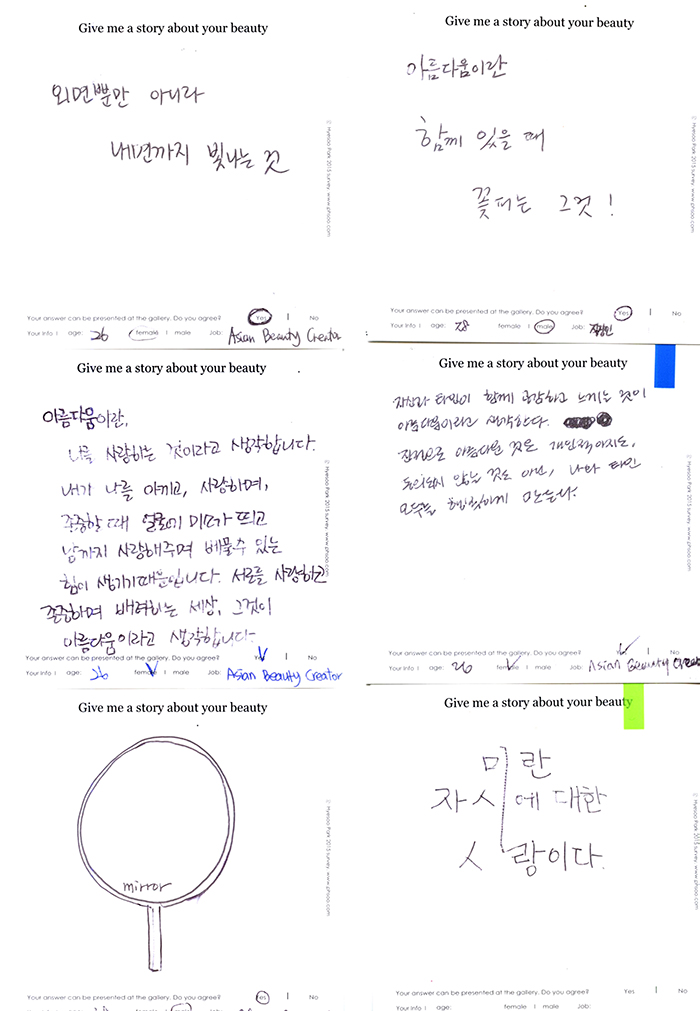 Give me a story about your beauty
외면뿐만 아니라
내면까지 빛나는 것
© Hyesoo Park 2015 survey www.phsoo.com
Your answer can be presented at the gallery. Do you agree? Yes | No
Your info | age: 26 female | male Job: Asian Beauty Creator
Give me a story about your beauty
아름다움이란
함께 있을 때
꽃피는 그것!
© Hyesoo Park 2015 survey www.phsoo.com
Your answer can be presented at the gallery. Do you agree? Yes | No
Your info | age: 28 female | male Job: 직장인
Give me a story about your beauty
아름다움이란,
나를 사랑하는 것이라고 생각합니다.
내가 나를 아끼고, 사랑하며,
존중할 때 얼굴에 미소가 띄고
남까지 사랑해주며 베풀수 있는
힘이 생기기때문입니다. 서로를 사랑하고
존중하며 배려하는 세상, 그것이
아름다움이라고 생각합니다.
© Hyesoo Park 2015 survey www.phsoo.com
Your answer can be presented at the gallery. Do you agree? Yes | No
Your info | age: 26 female | male Job: Asian Beauty Creator
Give me a story about your beauty
자신과 타인이 함께 공감하고 느끼는 것이
아름다움이라고 생각한다.
진정으로 아름다운 것은 개인적이지도,
동의되지 않는 것도 아닌, 나와 타인
모두를 행복하게 만든다.
© Hyesoo Park 2015 survey www.phsoo.com
Your answer can be presented at the gallery. Do you agree? | No
Your info | age: 26 female | male Job: Asian Beauty
Give me a story about your beauty
mirror
© Hyesoo Park 2015 survey www.phsoo.com
Your answer can be presented at the gallery. Do you agree? Yes | No
Your info | age: female | male Job:
Give me a story about your beauty
미란
자신에 대한
사랑이다.
© Hyesoo Park 2015 survey www.phsoo.com
Your answer can be presented at the gallery. Do you agree? Yes | No
Your info | age: female | male Job: